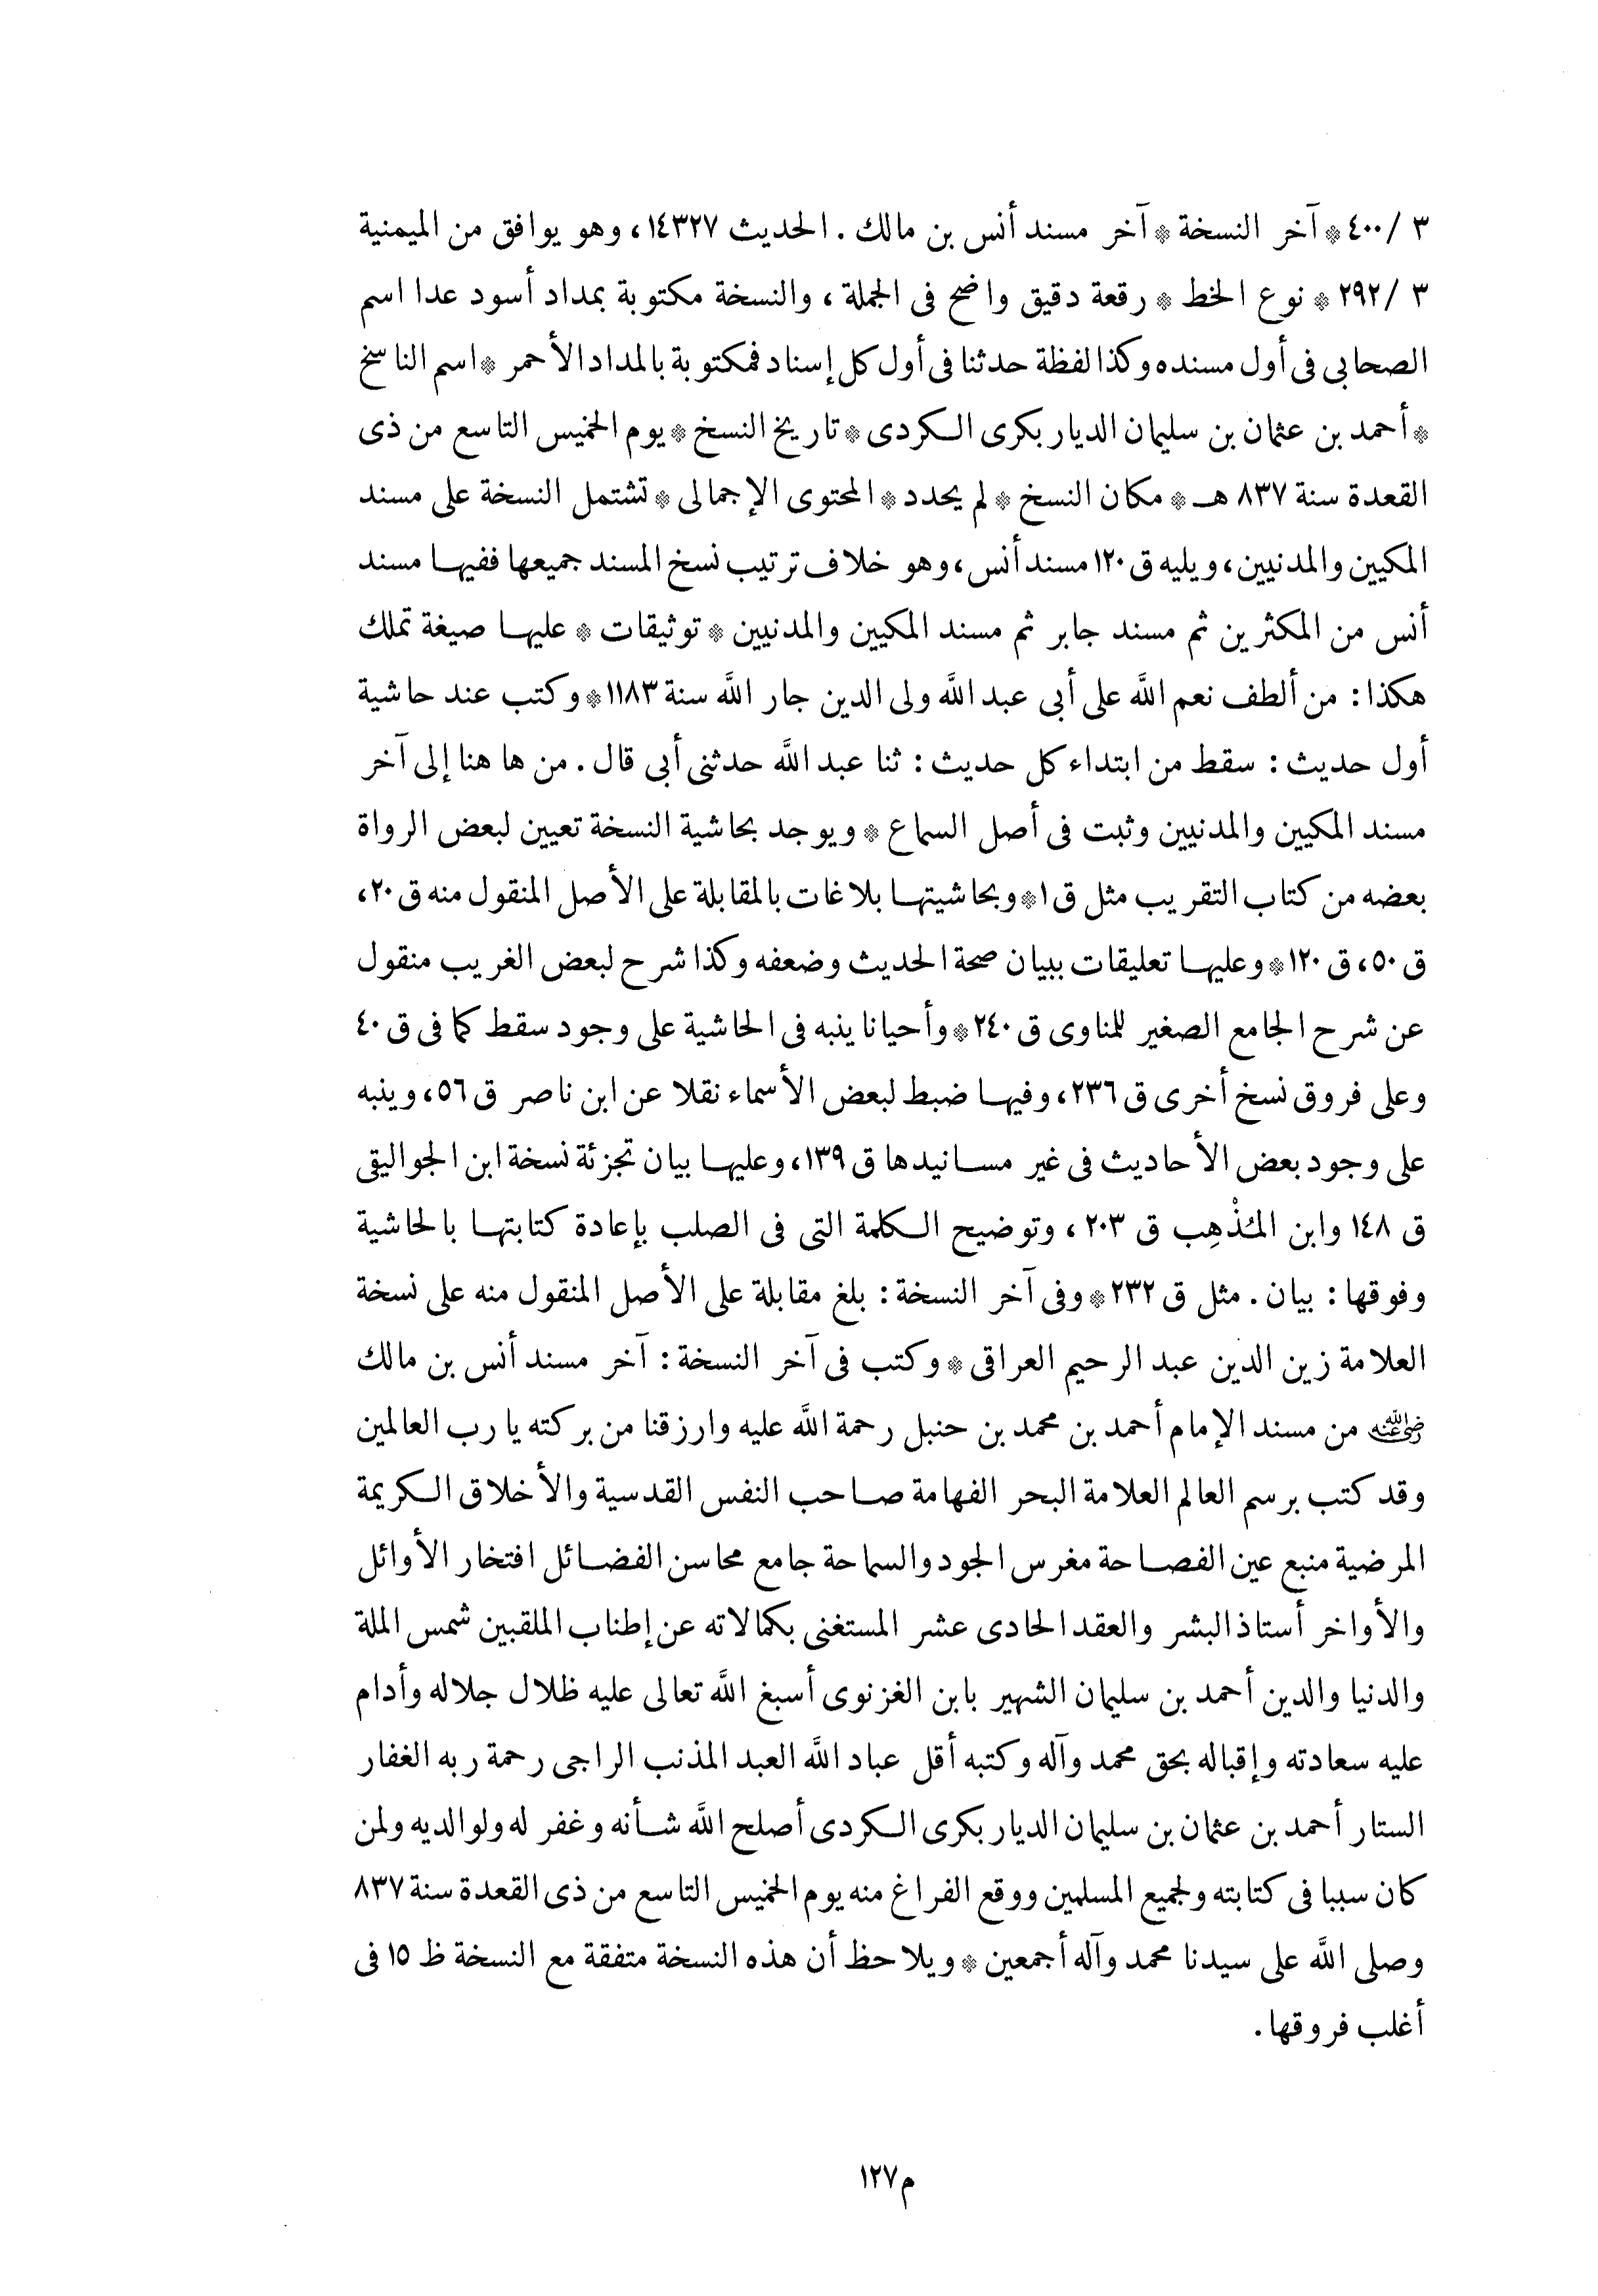 ٣ / ٤٠٠ * آخر النسخة * آخر مسند أنس بن مالك . الحديث ١٤٣٢٧ ، وهو يوافق من الميمنية
٣ / ٢٩٢ * نوع الخط * رقعة دقيق واضح فى الجملة ، والنسخة مكتوبة بمداد أسود عدا اسم
الصحابى فى أول مسنده وكذا لفظة حدثنا فى أول كل إسناد فمكتوبة بالمداد الأحمر * اسم الناسخ
* أحمد بن عثمان بن سليمان الديار بكرى الكردى * تاريخ النسخ * يوم الخميس التاسع من ذى
القعدة سنة ٨٣٧ هـ * مكان النسخ * لم يحدد * المحتوى الإجمالى * تشتمل النسخة على مسند
المكيين والمدنيين ، ويليه ق ١٢٠ مسند أنس ، وهو خلاف ترتيب نسخ المسند جميعها ففيها مسند
أنس من المكثرين ثم مسند جابر ثم مسند المكيين والمدنيين * توثيقات * عليها صيغة تملك
هكذا : من ألطف نعم اللَّه على أبى عبد اللَّه ولى الدين جار اللَّه سنة ١١٨٣ * وكتب عند حاشية
أول حديث : سقط من ابتداء كل حديث : ثنا عبد اللَّه حدثنى أبى قال . من ها هنا إلى آخر
مسند المكيين والمدنيين وثبت فى أصل السماع * ويوجد بحاشية النسخة تعيين لبعض الرواة
بعضه من كتاب التقريب مثل ق ١ * وبحاشيتها بلاغات بالمقابلة على الأصل المنقول منه ق ٢٠ ،
ق ٥٠ ، ق ١٢٠ * وعليها تعليقات ببيان صحة الحديث وضعفه وكذا شرح لبعض الغريب منقول
عن شرح الجامع الصغير للمناوى ق ٢٤٠ * وأحيانا ينبه فى الحاشية على وجود سقط كما فى ق ٤٠
وعلى فروق نسخ أخرى ق ٢٣٦ ، وفيها ضبط لبعض الأسماء نقلا عن ابن ناصر ق ٥٦ ، وينبه
على وجود بعض الأحاديث فى غير مسانيدها ق ١٣٩ ، وعليها بيان تجزئة نسخة ابن الجواليقى
ق ١٤٨ وابن المُذْهِب ق ٢٠٣ ، وتوضيح الكلمة التى فى الصلب بإعادة كتابتها بالحاشية
وفوقها : بيان . مثل ق ٢٣٢ * وفى آخر النسخة : بلغ مقابلة على الأصل المنقول منه على نسخة
العلامة زين الدين عبد الرحيم العراقى * وكتب فى آخر النسخة : آخر مسند أنس بن مالك
رضي الله عنه من مسند الإمام أحمد بن محمد بن حنبل رحمة اللَّه عليه وارزقنا من بركته يا رب العالمين
وقد كتب برسم العالم العلامة البحر الفهامة صاحب النفس القدسية والأخلاق الكريمة
المرضية منبع عين الفصاحة مغرس الجود والسماحة جامع محاسن الفضائل افتخار الأوائل
والأواخر أستاذ البشر والعقد الحادى عشر المستغنى بكمالاته عن إطناب الملقبين شمس الملة
والدنيا والدين أحمد بن سليمان الشهير بابن الغزنوى أسبغ اللَّه تعالى عليه ظلال جلاله وأدام
عليه سعادته وإقباله بحق محمد وآله وكتبه أقل عباد اللَّه العبد المذنب الراجى رحمة ربه الغفار
الستار أحمد بن عثمان بن سليمان الديار بكرى الكردى أصلح اللَّه شأنه وغفر له ولوالديه ولمن
كان سببا فى كتابته ولجميع المسلمين ووقع الفراغ منه يوم الخميس التاسع من ذى القعدة سنة ٨٣٧
وصلى اللَّه على سيدنا محمد وآله أجمعين * ويلاحظ أن هذه النسخة متفقة مع النسخة ظ ١٥ فى
أغلب فروقها .
م ١٢٧